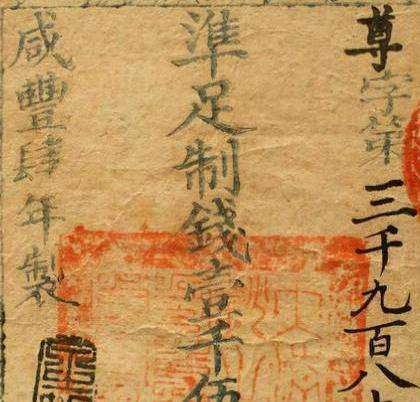 尊字第三千九百八
準足制錢壹千伍
咸豐肆年製